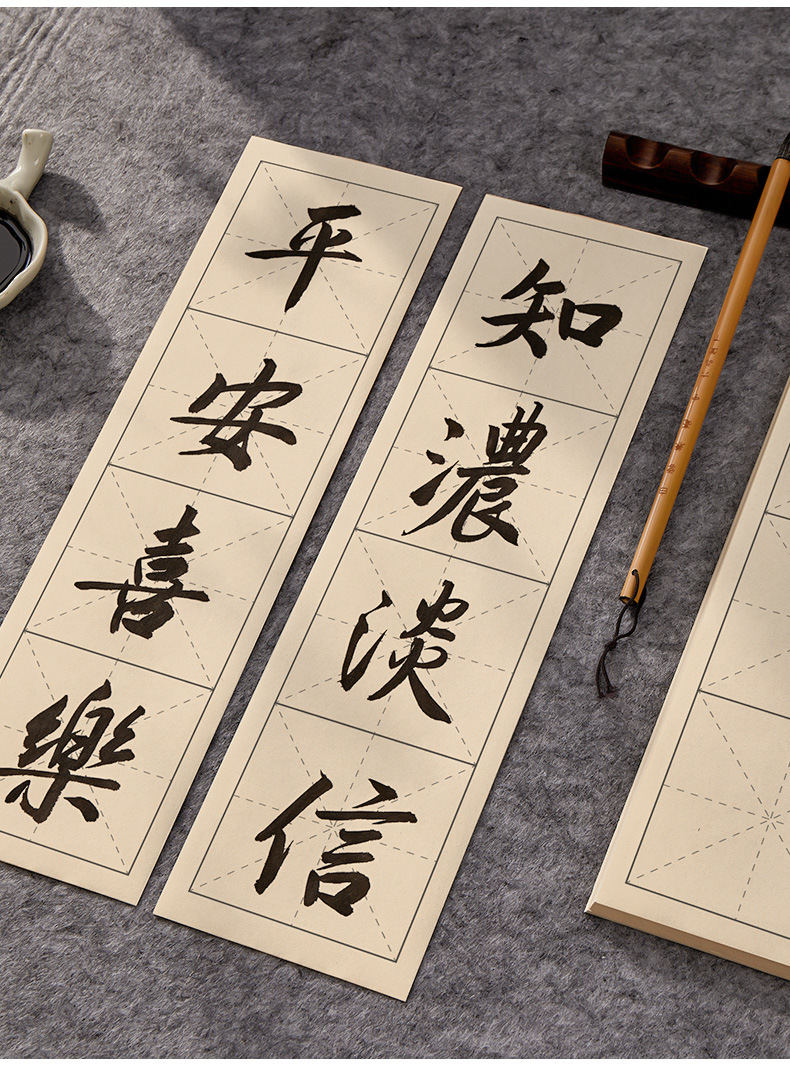 平安喜樂
知濃淡信